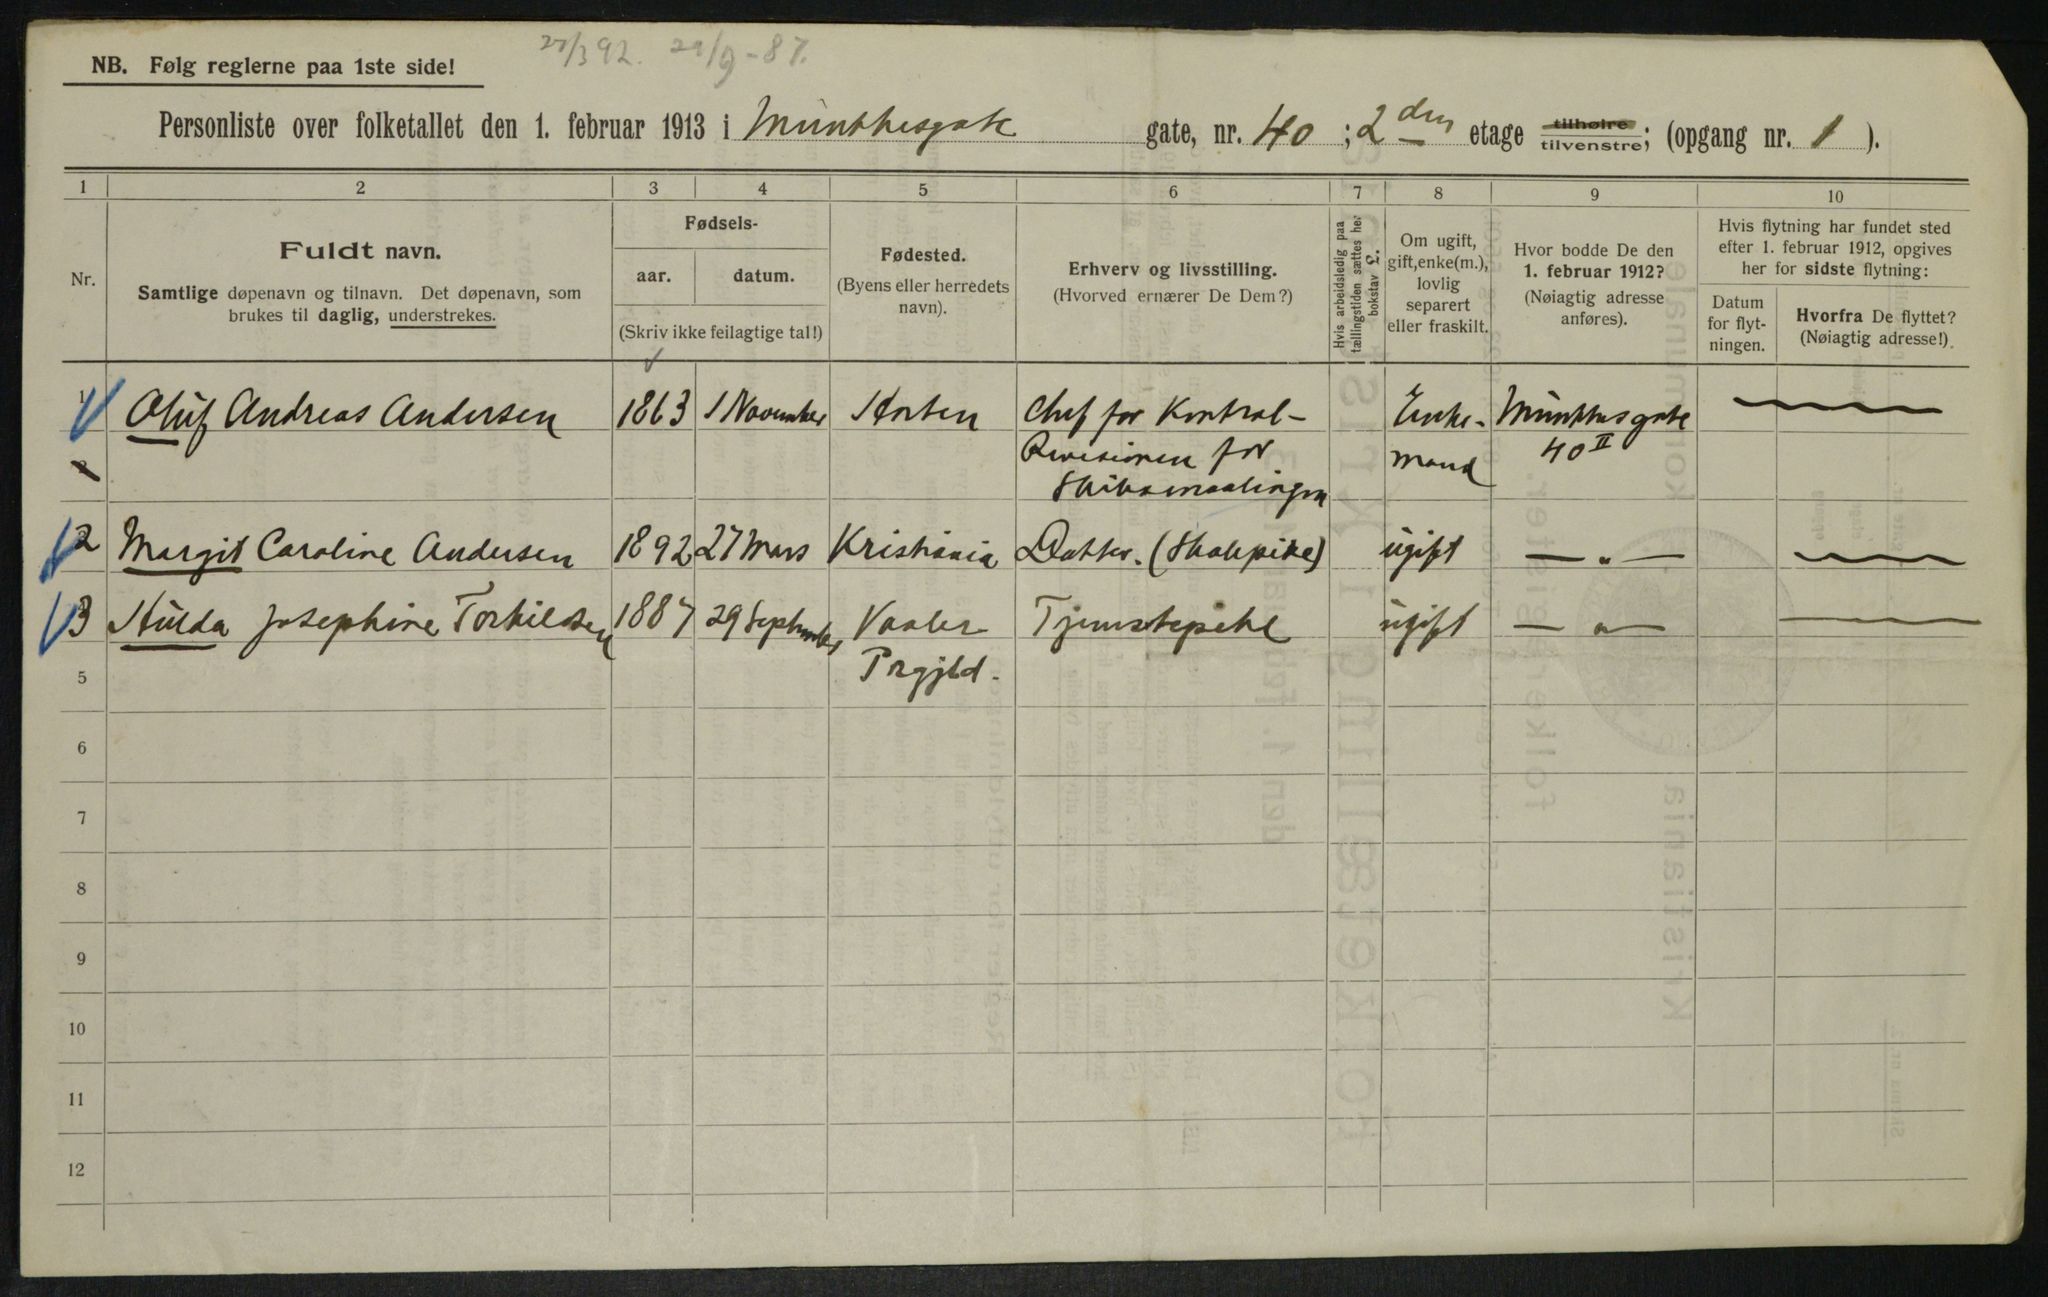 27/3 92. 29/9-87.
NB. Følg reglerne paa 1ste side!
Personliste over folketallet den 1. februar 1913 i Munthesgate gate, nr. 40 ; 2den etage tilhøire tilvenstre; (opgang nr. 1 ).
1 2 3 4 5 6 7 8 9 10
Nr.
Fuldt navn.
Samtlige døpenavn og tilnavn. Det døpenavn, som
brukes til daglig, understrekes.
Fødsels-
aar. datum.
(Skriv ikke feilagtige tal!)
Fødested.
(Byens eller herredets
navn).
Erhverv og livsstilling.
(Hvorved ernærer De Dem?)
Hvis arbeidsledig paa
tællingstiden sættes her
bokstav L.
Om ugift,
gift, enke(m.),
lovlig
separert
eller fraskilt.
Hvor bodde De den
1. februar 1912?
(Nøiagtig adresse
anføres).
Hvis flytning har fundet sted
efter 1. februar 1912, opgives
her for sidste flytning:
Datum
for flyt-
ningen.
Hvorfra De flyttet?
(Nøiagtig adresse!).
1 Oluf Andreas Andersen 1863 1 November Horten Chef for Kontrol- Enke- Munthesgate
Revisionen for mand 40 II
Skibsmaalingen
2 Margit Caroline Andersen 1892 27 Mars Kristiania Datter. (Skolepike) ugift — „ —
3 Hulda Josephine Torkildsen 1887 29 September Vaaler Tjenstepike ugift — „ —
Prgjld.
5
6
7
8
9
10
11
12